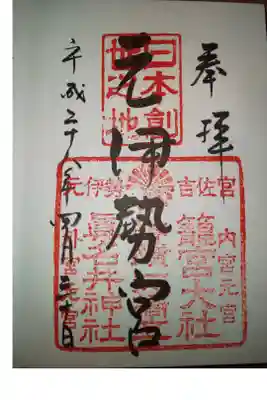 奉拝
日本創
元伊勢宮
平成二十八年四月三十日
元伊勢
吉佐宮
内宮元宮
籠宮大社
眞名井神社
外宮元宮